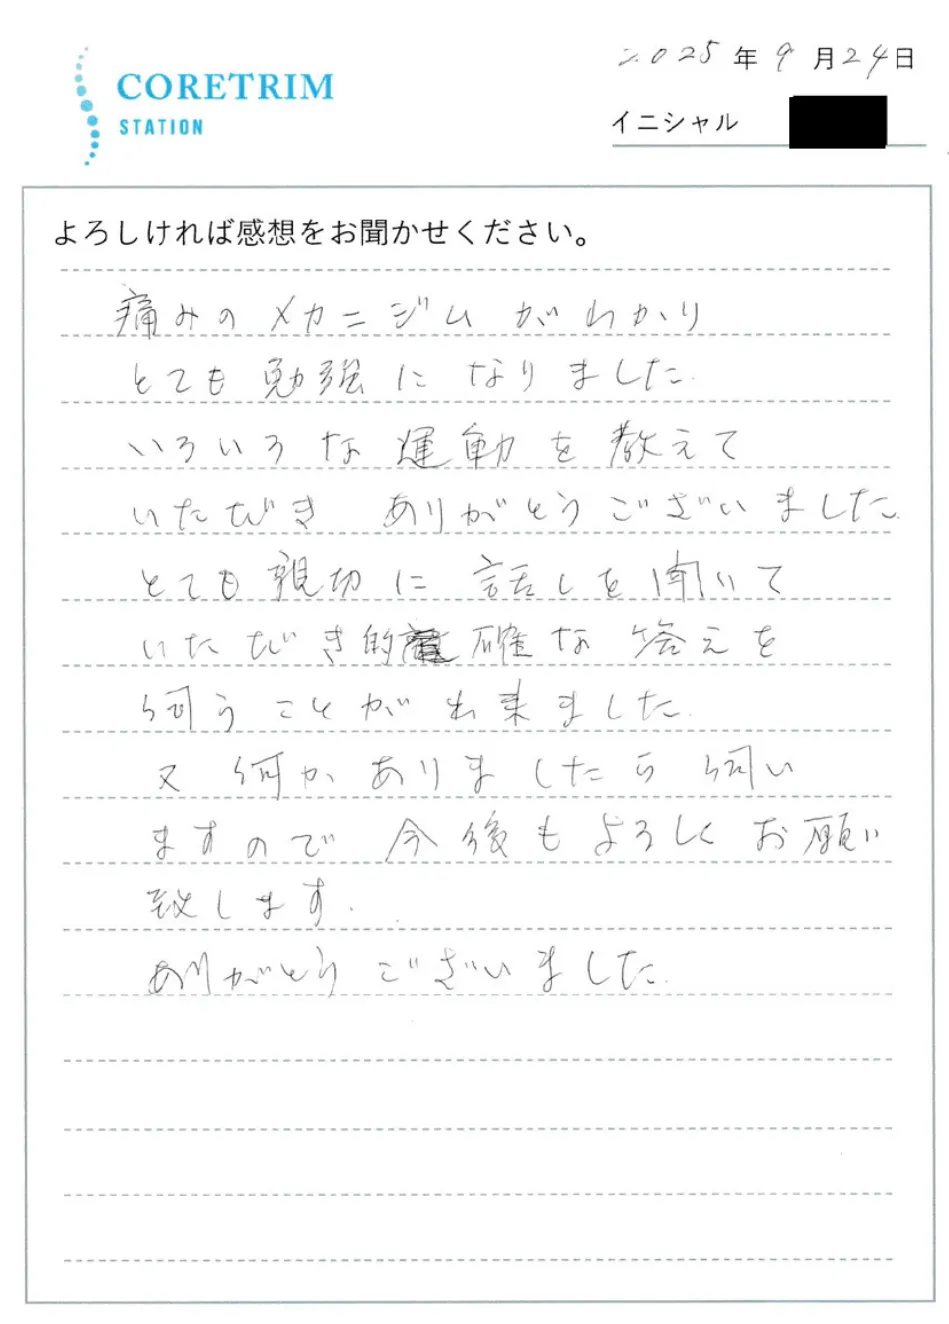 CORETRIM
STATION
2025年9月24日
イニシャル
よろしければ感想をお聞かせください。
痛みのメカニジムがわかり
とても勉強になりました.
いろいろな運動を教えて
いただき ありがとうございました.
とても親切に 話しを聞いて
いただき的確な答えを
伺うことが出来ました.
又 何かありましたら伺い
ますので 今後もよろしくお願い
致します.
ありがとう ございました.